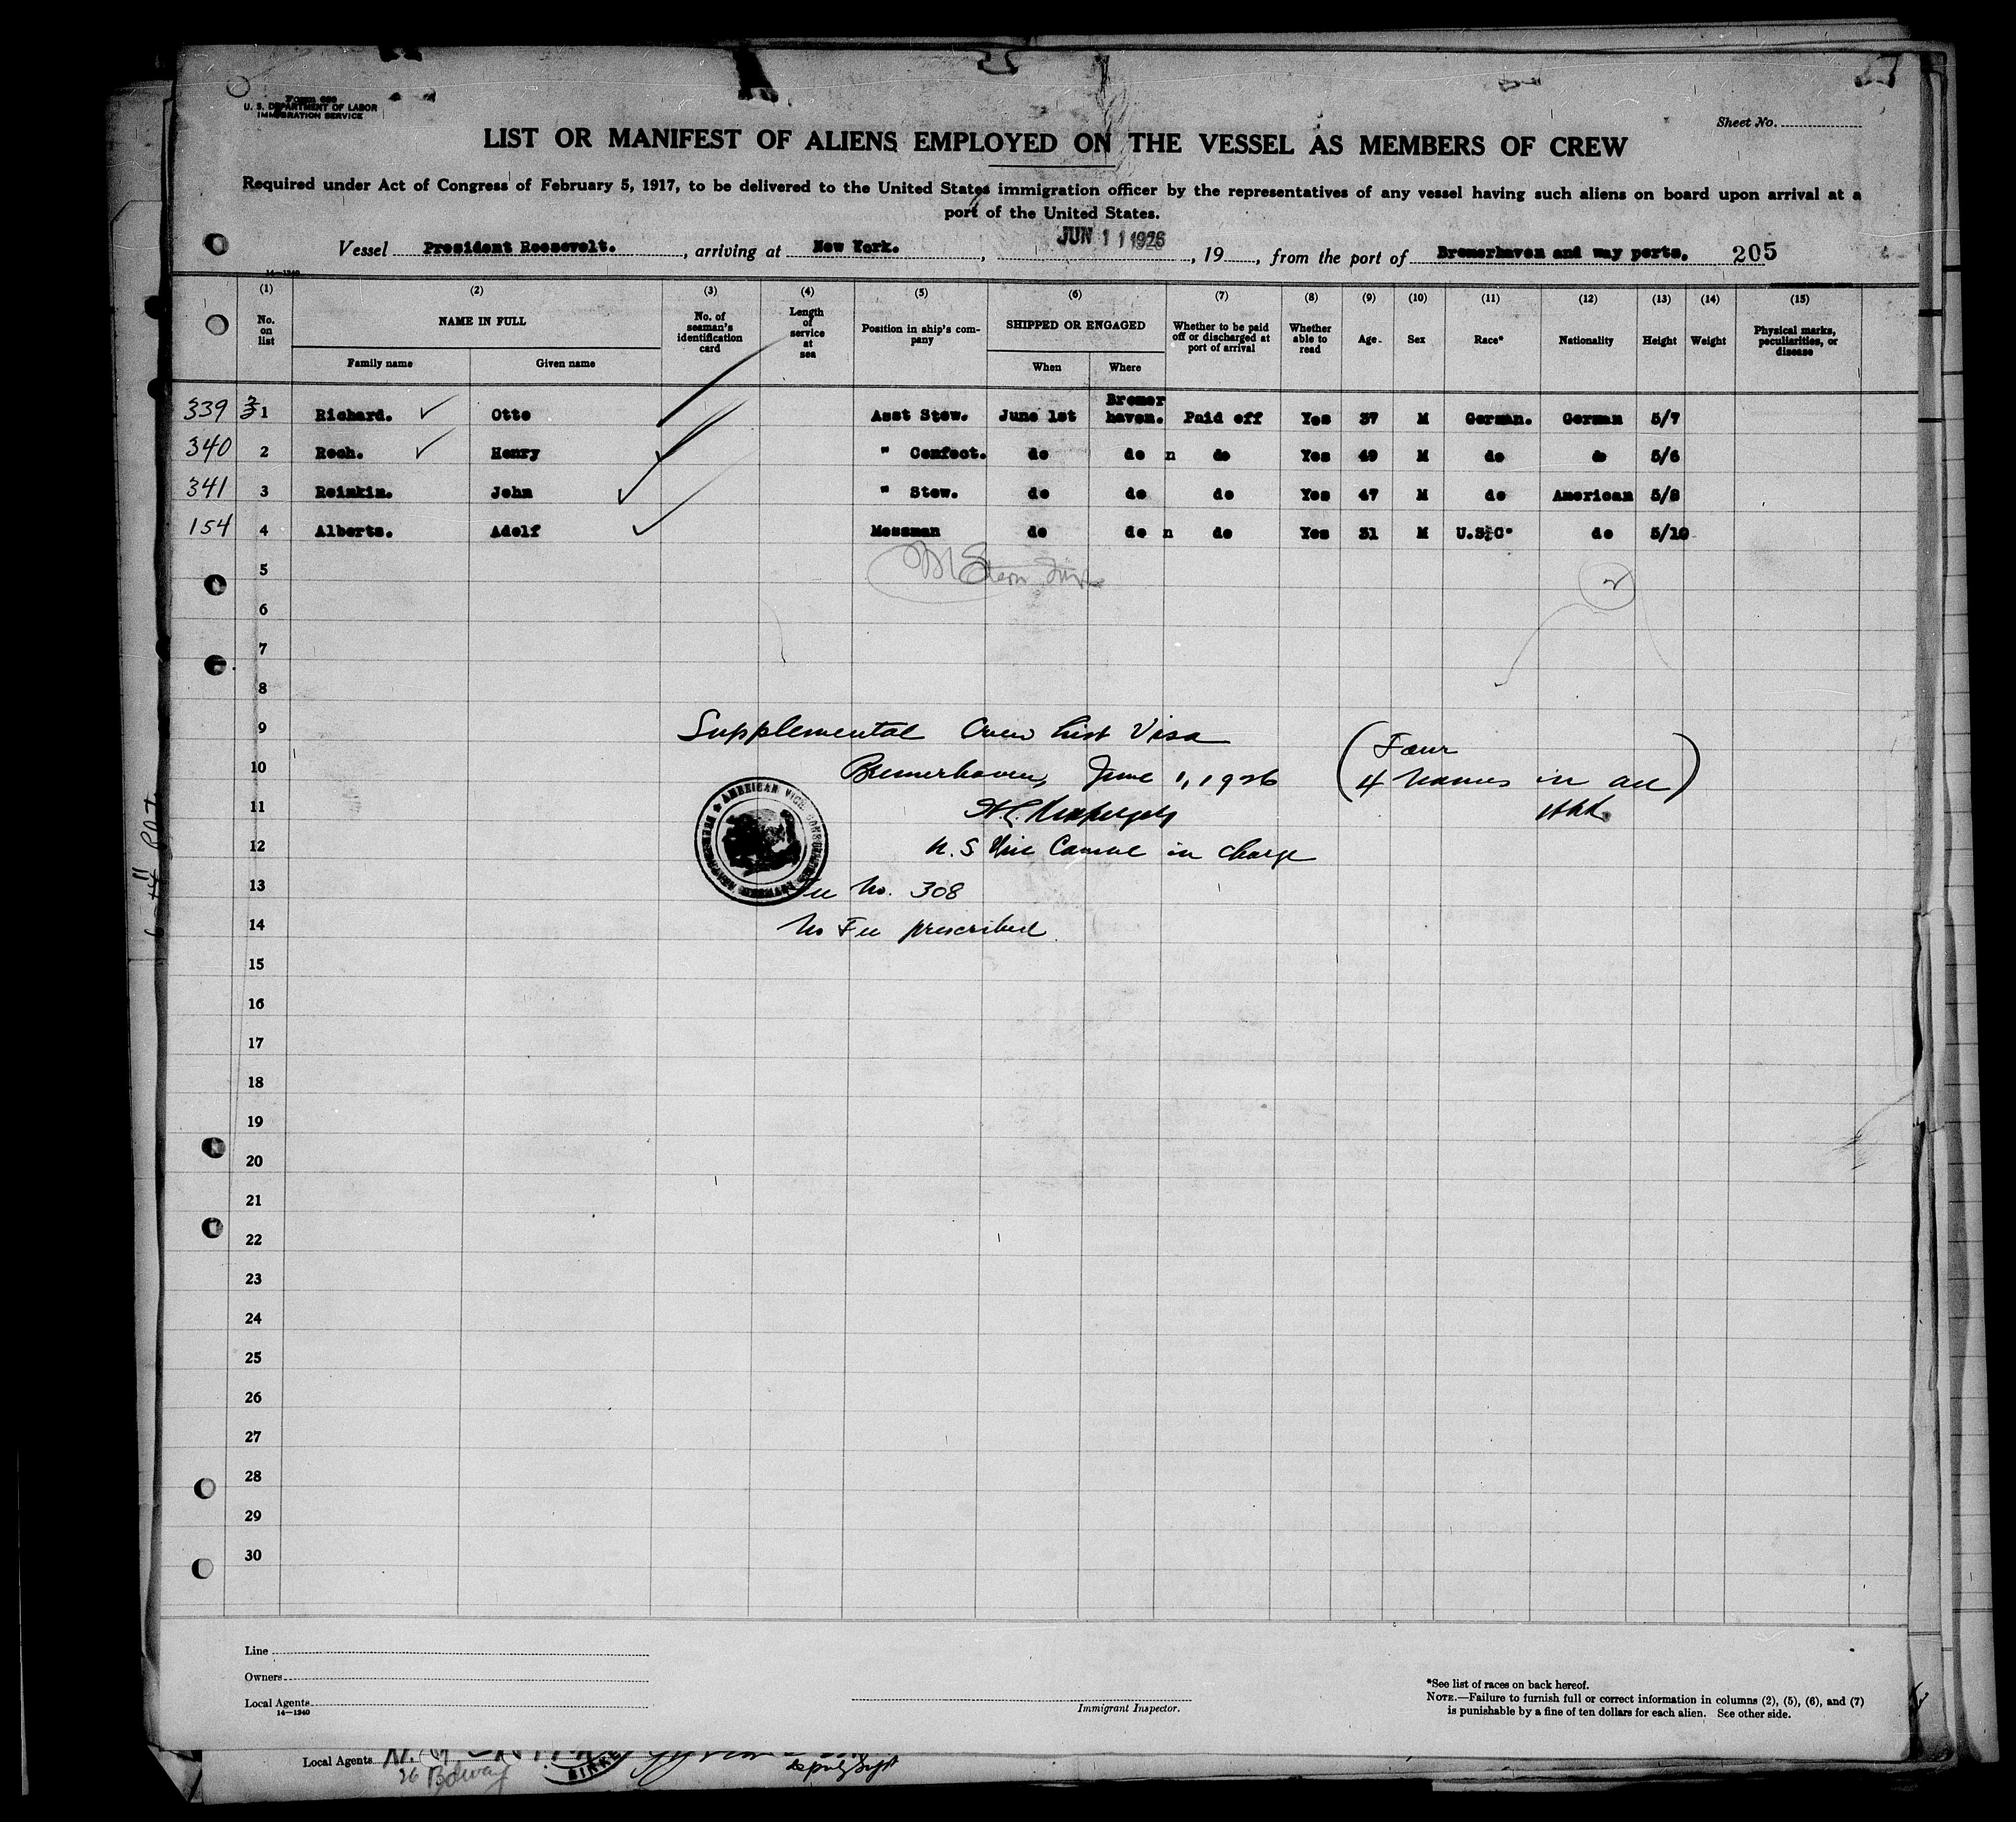 Form 680
U. S. DEPARTMENT OF LABOR
IMMIGRATION SERVICE
Sheet No.
LIST OR MANIFEST OF ALIENS EMPLOYED ON THE VESSEL AS MEMBERS OF CREW
Required under Act of Congress of February 5, 1917, to be delivered to the United States immigration officer by the representatives of any vessel having such aliens on board upon arrival at a
port of the United States.
Vessel President Roosevelt. , arriving at New York. , JUN 11 1926 , 19 , from the port of Bremerhaven and way ports. 205
14—1240
(1) (2) (3) (4) (5) (6) (7) (8) (9) (10) (11) (12) (13) (14) (15)
No. on list NAME IN FULL No. of seaman's identification card Length of service at sea Position in ship's company SHIPPED OR ENGAGED Whether to be paid off or discharged at port of arrival Whether able to read Age Sex Race* Nationality Height Weight Physical marks, peculiarities, or disease
Family name Given name When Where
339 1 Richard. Otto Asst Stew. June 1st Bremerhaven. Paid off Yes 37 M German. German 5/7
340 2 Roch. Henry " Confect. do do n do Yes 49 M do do 5/6
341 3 Reinkin. John " Stew. do do do Yes 47 M do American 5/8
154 4 Alberts. Adolf Messman do do n do Yes 31 M U.S.C. do 5/10
5
6
7
8
9
10
11
12
13
14
15
16
17
18
19
20
21
22
23
24
25
26
27
28
29
30
Supplemental Crew List Visa
Bremerhaven, June 1, 1926
(Four
4 names in all)
U. S. Vice Consul in charge
Fee No. 308
No Fee prescribed
AMERICAN VICE
Line
Owners
Local Agents
14—1240
Immigrant Inspector.
*See list of races on back hereof.
NOTE.—Failure to furnish full or correct information in columns (2), (5), (6), and (7)
is punishable by a fine of ten dollars for each alien. See other side.
Local Agents
26 Bdway